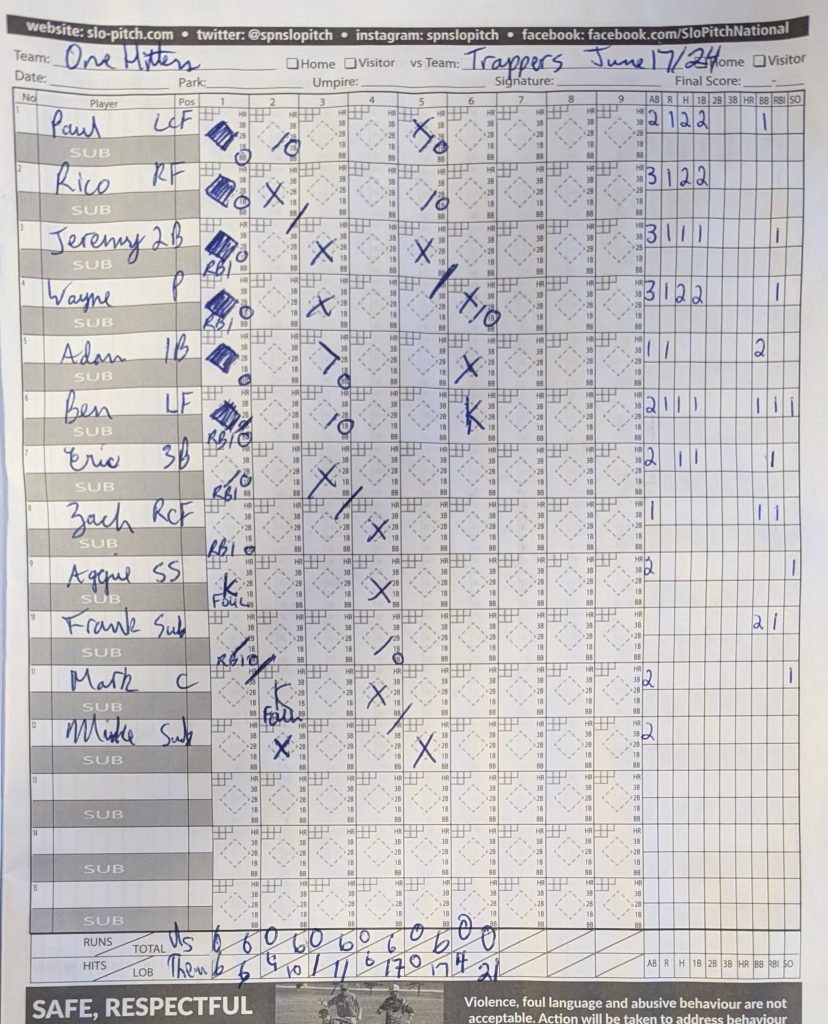 website: slo-pitch.com • twitter: @spnslopitch • instagram: spnslopitch • facebook: facebook.com/SloPitchNational
Team: One Hitters Home Visitor vs Team: Trappers June 17/24 Home Visitor
Date: Park: Umpire: Signature: Final Score: -
No Player Pos 1 2 3 4 5 6 7 8 9 AB R H 1B 2B 3B HR BB RBI SO
1 Paul LCF 2 1 2 2 1
SUB
2 Rico RF 3 1 2 2
SUB
3 Jeremy 2B 3 1 1 1 1
SUB RBI
4 Wayne P 3 1 2 2 1
SUB RBI
5 Adam 1B 1 1 2
SUB
6 Ben LF K 2 1 1 1 1 1 1
SUB RBI
7 Eric 3B 2 1 1 1
SUB RBI
8 Zach RCF 1 1 1
SUB RBI
9 Aggie SS K 2 1
SUB FOUL
10 Frank Sub 2 1
SUB RBI
11 Mark C K 2 1
SUB Foul
12 Mike Sub 2
SUB
13
SUB
14
SUB
15
SUB
RUNS TOTAL Us 6 6 0 6 0 6 0 6 0 6 0 0
HITS LOB Them 6 6 4 10 1 11 6 17 0 17 4 21 AB R H 1B 2B 3B HR BB RBI SO
SAFE, RESPECTFUL
Violence, foul language and abusive behaviour are not
acceptable. Action will be taken to address behaviour